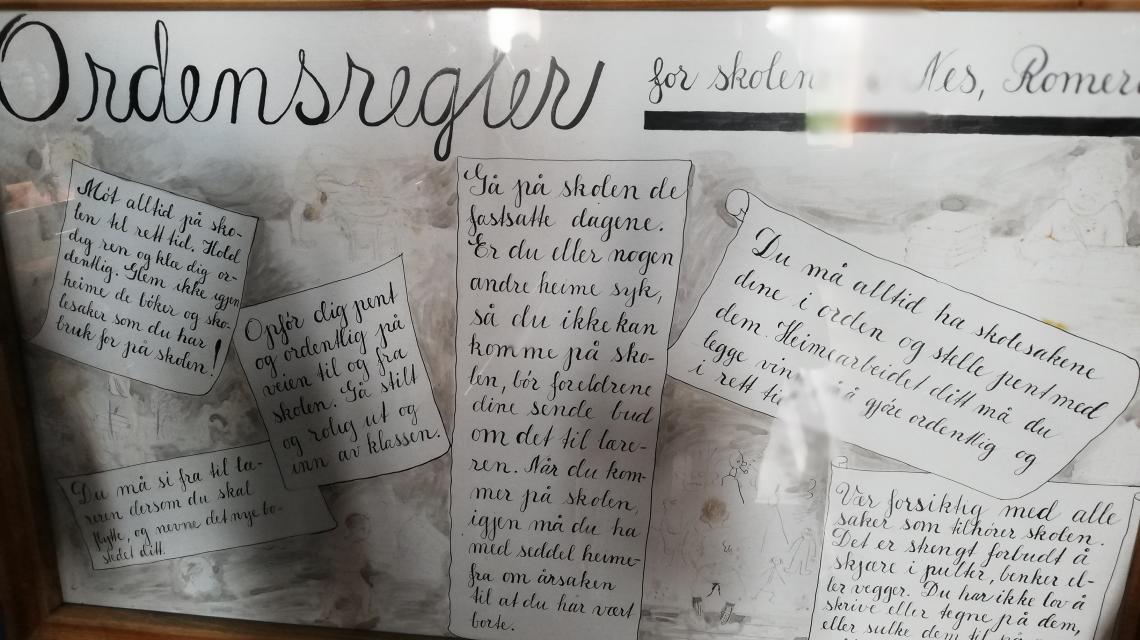 Ordensregler
for skolen Nes,
Møt alltid på sko-
len til rett tid. Hold
dig ren og klæ dig or-
dentlig. Glem ikke igjen
heime de bøker og sko-
lesaker som du har
bruk for på skolen!
Opfør dig pent
og ordentlig på
veien til og fra
skolen. Gå stilt
og rolig ut og
inn av klassen.
Du må si fra til læ-
reren dersom du skal
flytte, og nevne det nye bo-
stedet ditt.
Gå på skolen de
fastsatte dagene.
Er du eller nogen
andre heime syk,
så du ikke kan
komme på sko-
len, bør foreldrene
dine sende bud
om det til lære-
ren. Når du kom-
mer på skolen,
igjen må du ha
med seddel heime-
fra om årsaken
til at du har vært
borte.
Du må alltid ha skolesakene
dine i orden og stelle pent med
dem. Heimearbeidet ditt må du
legge på å gjøre ordentlig og
i rett
Vær forsiktig med alle
saker som tilhører skolen.
Det er strengt forbudt å
skjære i pulter, benker el-
ler vegger. Du har ikke lov å
skrive eller tegne på dem,
eller sulke dem til på